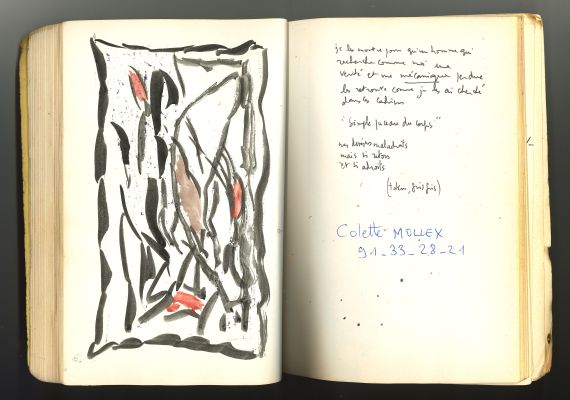 je les montre pour qu'un homme qui
recherche comme moi une
vérité et une mécanique perdue
les retrouve comme je les ai cherché
dans les cahiers
"simple pureau du corps"
mes dessins maladroits
mais si
et si adroits
Colette MOLLEX
91-33-28-21